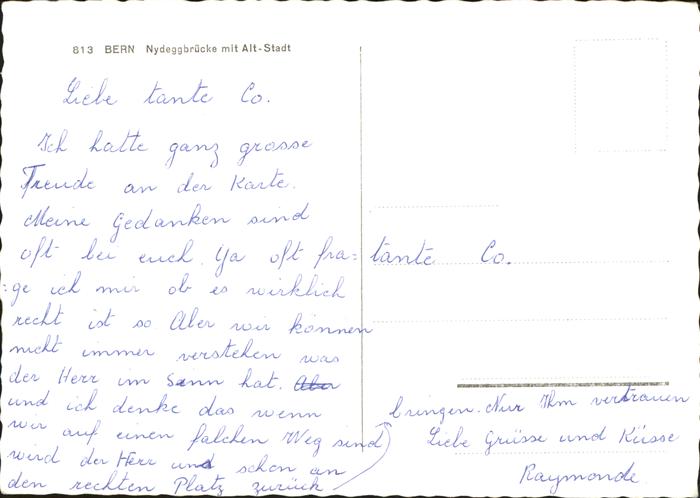 813 BERN Nydeggbrücke mit Alt-Stadt
Liebe tante Co.
Ich hatte ganz grosse
Freude an der Karte.
Meine Gedanken sind
oft bei euch. Ja oft fra=
:ge ich mir ob es wirklich
recht ist so. Aber wir können
nicht immer verstehen was
der Herr im Sinn hat. Aber
und ich denke das wenn
wir auf einen falchen Weg sind
wird der Herr und schon an
den rechten Platz zurück
bringen. Nur Ihm vertrauen
Liebe Grüsse und Küsse
Raymonde.
tante Co.